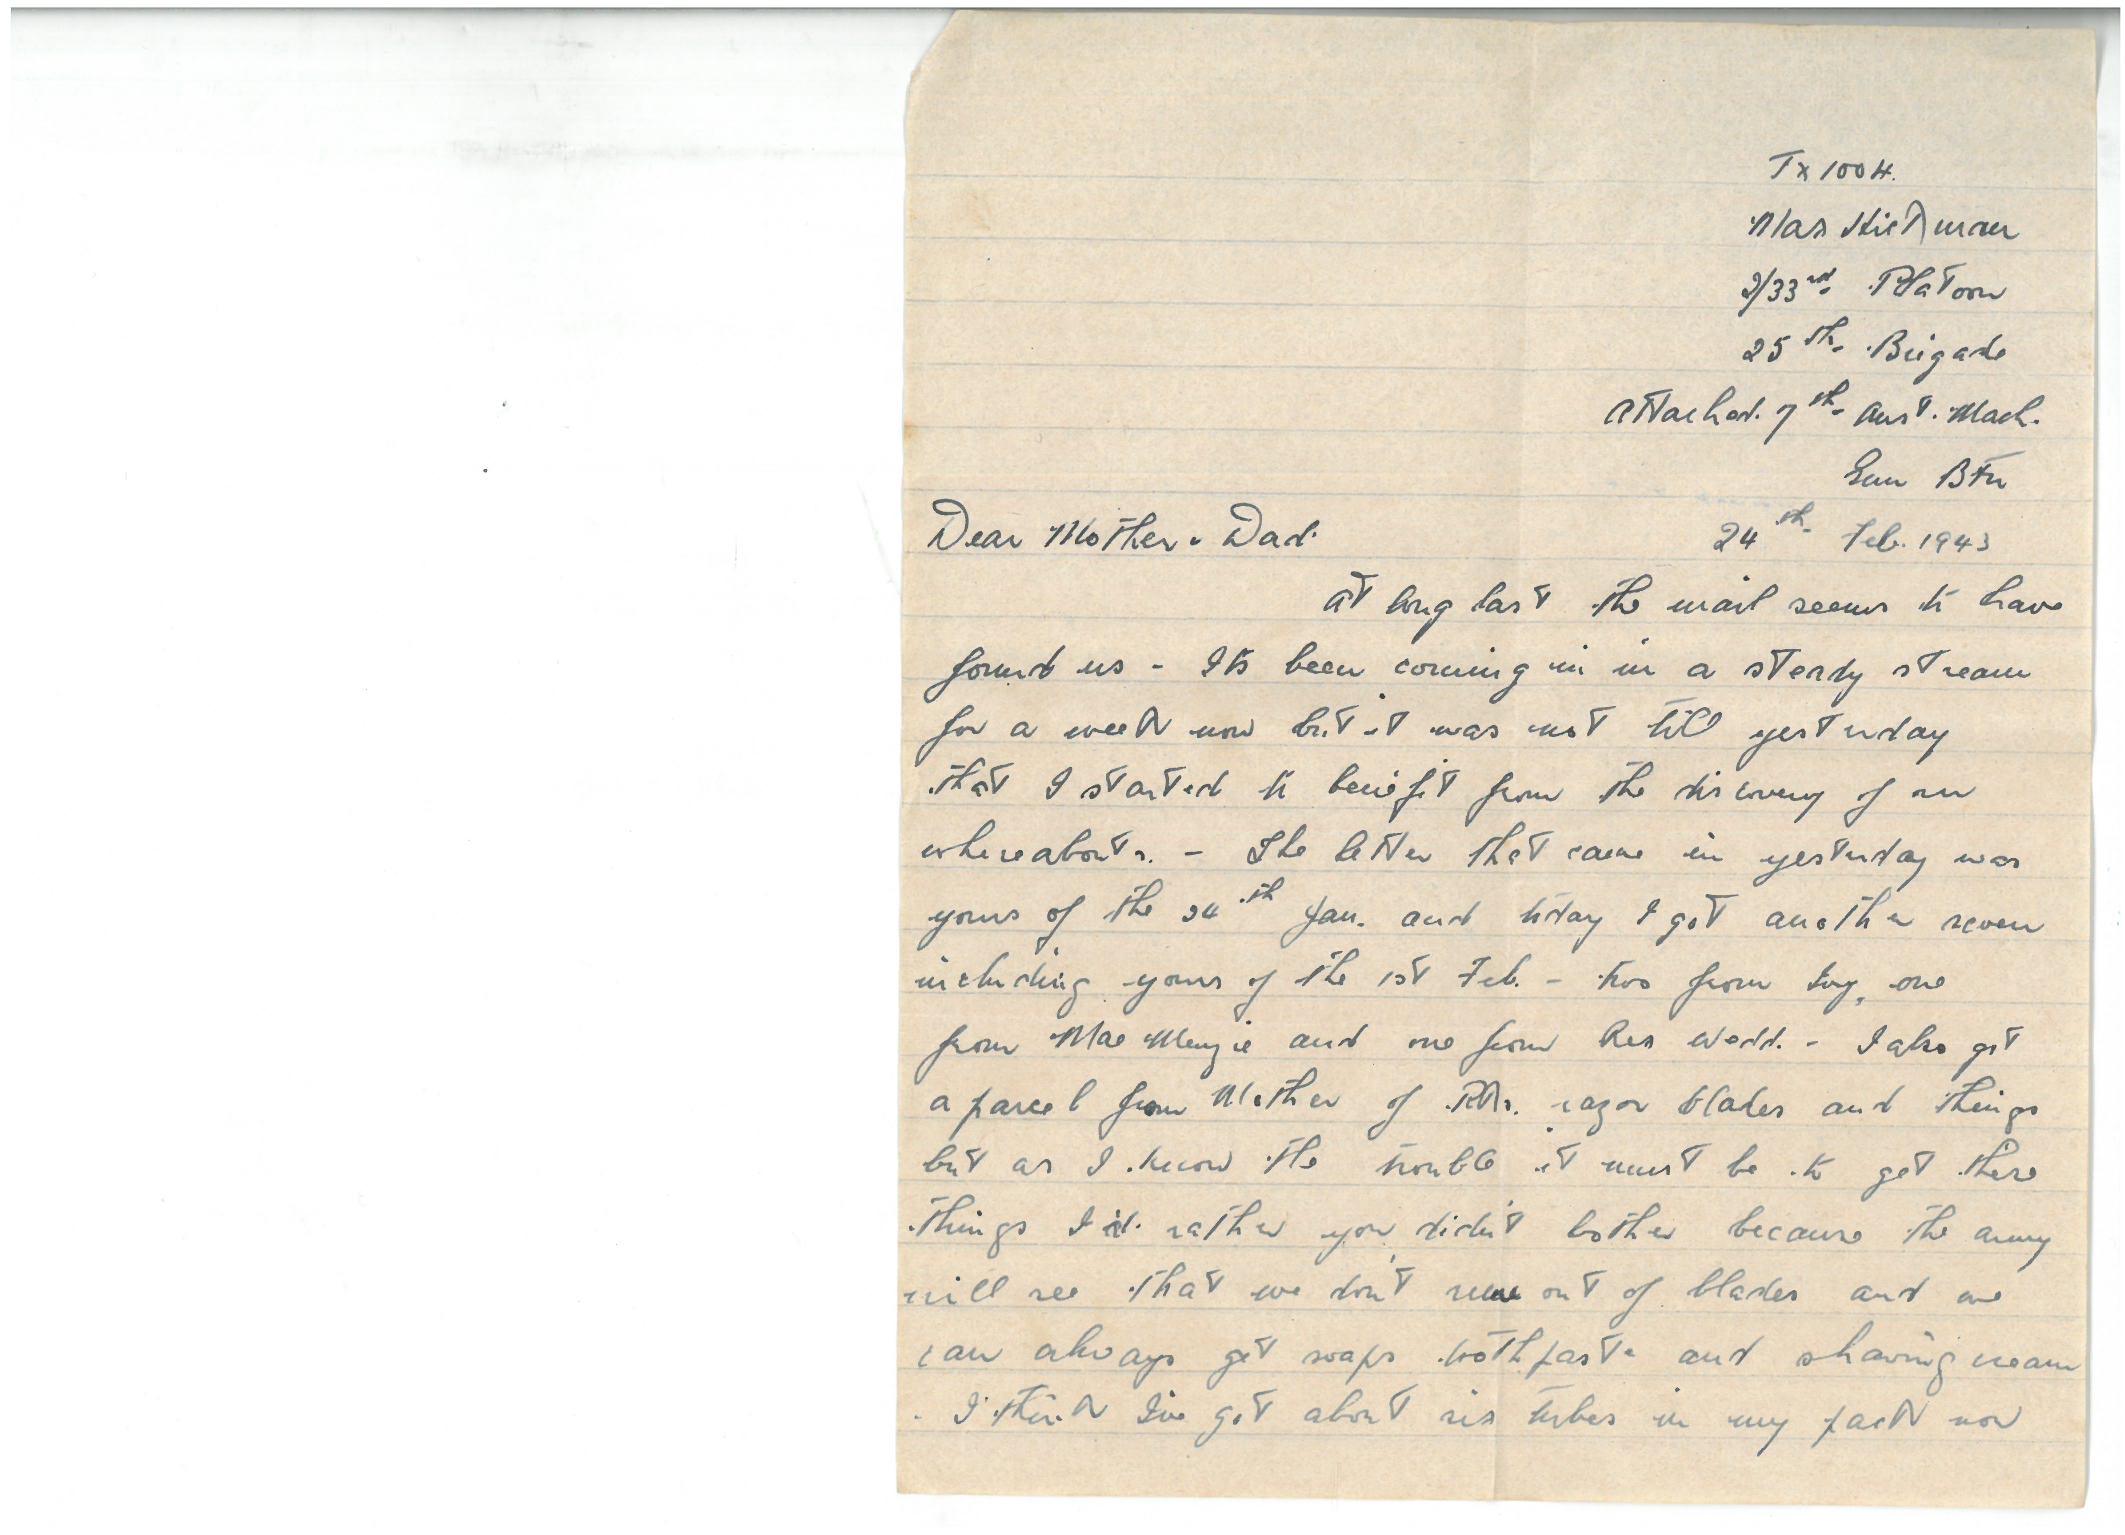 Tx 1004.
Max Hickman
2/33rd Platoon
25th Brigade
attached. 7th Aust. Mach.
Gun Btn
Dear Mother & Dad. 24th Feb. 1943
At long last the mail seems to have
found us - Its been coming in in a steady stream
for a week now but it was not till yesterday
that I started to benefit from the discovery of our
whereabouts. - The letter that came in yesterday was
yours of the 24th Jan. and today I got another seven
including yours of the 1st Feb. - two from , one
from Mac Menzie and one from Res Wedd. - I also got
a parcel from Mother of razor blades and things
but as I know the trouble it must be to get these
things I'd. rather you didn't bother because the army
will see that we don't run out of blades and we
can always get soaps toothpaste and shaving cream
. I think I've got about six tubes in my pack now